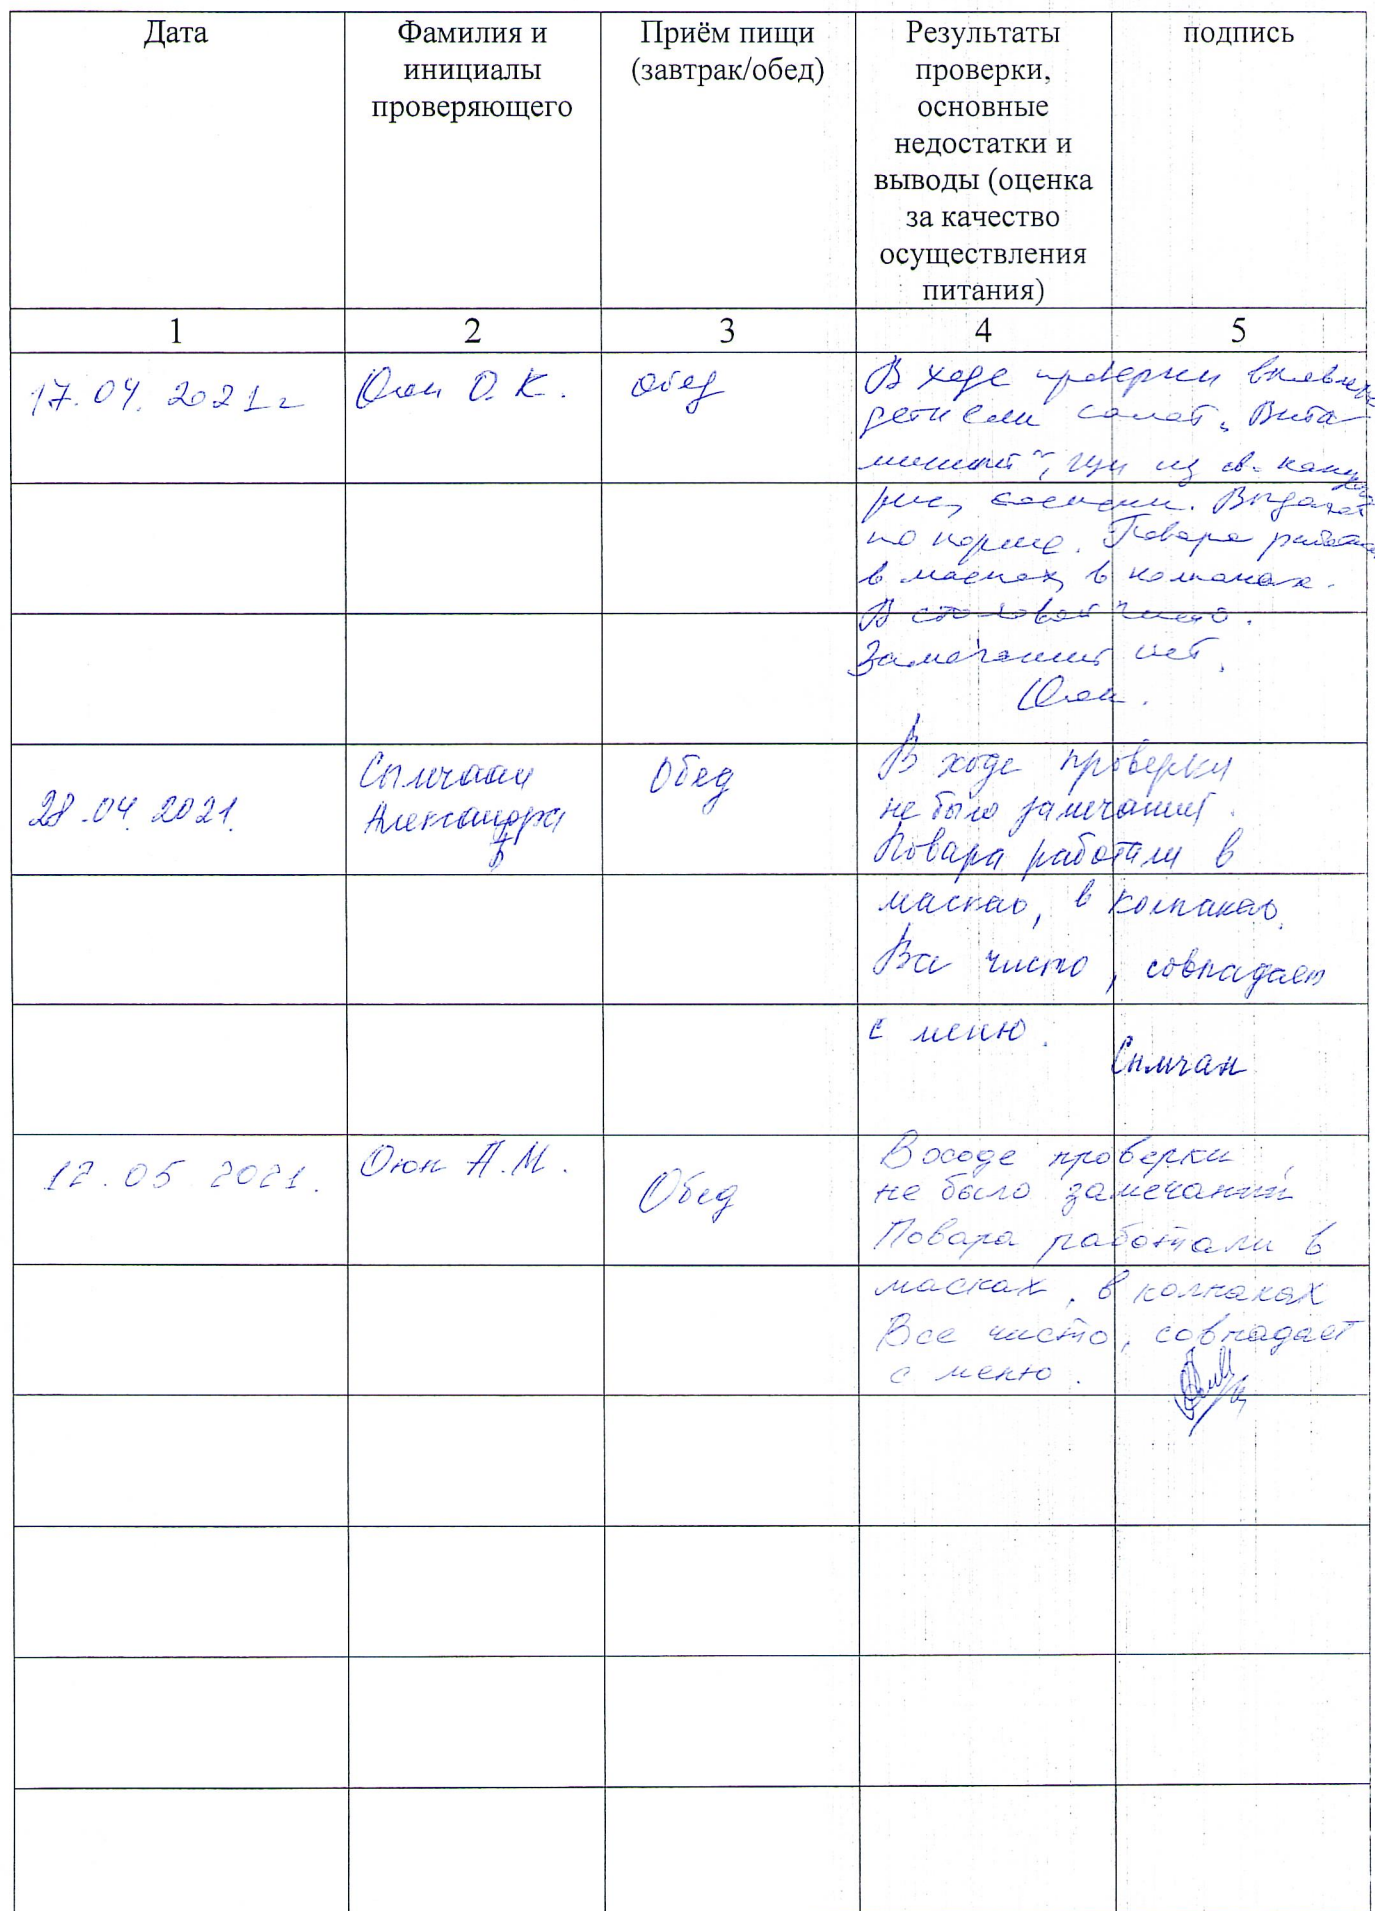 Дата
Фамилия и
инициалы
проверяющего
Приём пищи
(завтрак/обед)
Результаты
проверки,
основные
недостатки и
выводы (оценка
за качество
осуществления
питания)
подпись
1 2 3 4 5
17.04.2021г
Оюн О.К.
обед
В ходе проверки
дети ели салат „Вита
минный“, щи из св. капус
рис, сосиски. Выдают
по норме. Повара работа
в масках, в колпаках.
В столовой чисто.
Замечаний нет.
Оюн.
28.04.2021.
Сымчаан
Александра
Обед
В ходе проверки
не было замечаний.
Повара работали в
масках, в колпаках.
Вс чисто, совпадает
с меню.
Сымчан
12.05 2021.
Оюн А.М.
Обед
В ходе проверки
не было замечаний
Повара работали в
масках, в колпаках
Все чисто, совпадает
с меню.